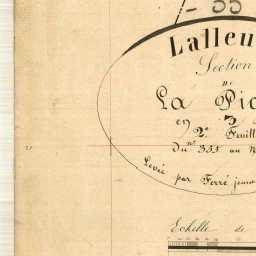 55
Lalleu
Section
La Pi
en 3
2e Feuill
Du No 355 au N
Levée par Ferré jeune
Echelle de